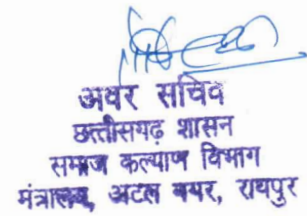 अवर सचिव
छत्तीसगढ़ शासन
समाज कल्याण विभाग
मंत्रालय, अटल नगर, रायपुर